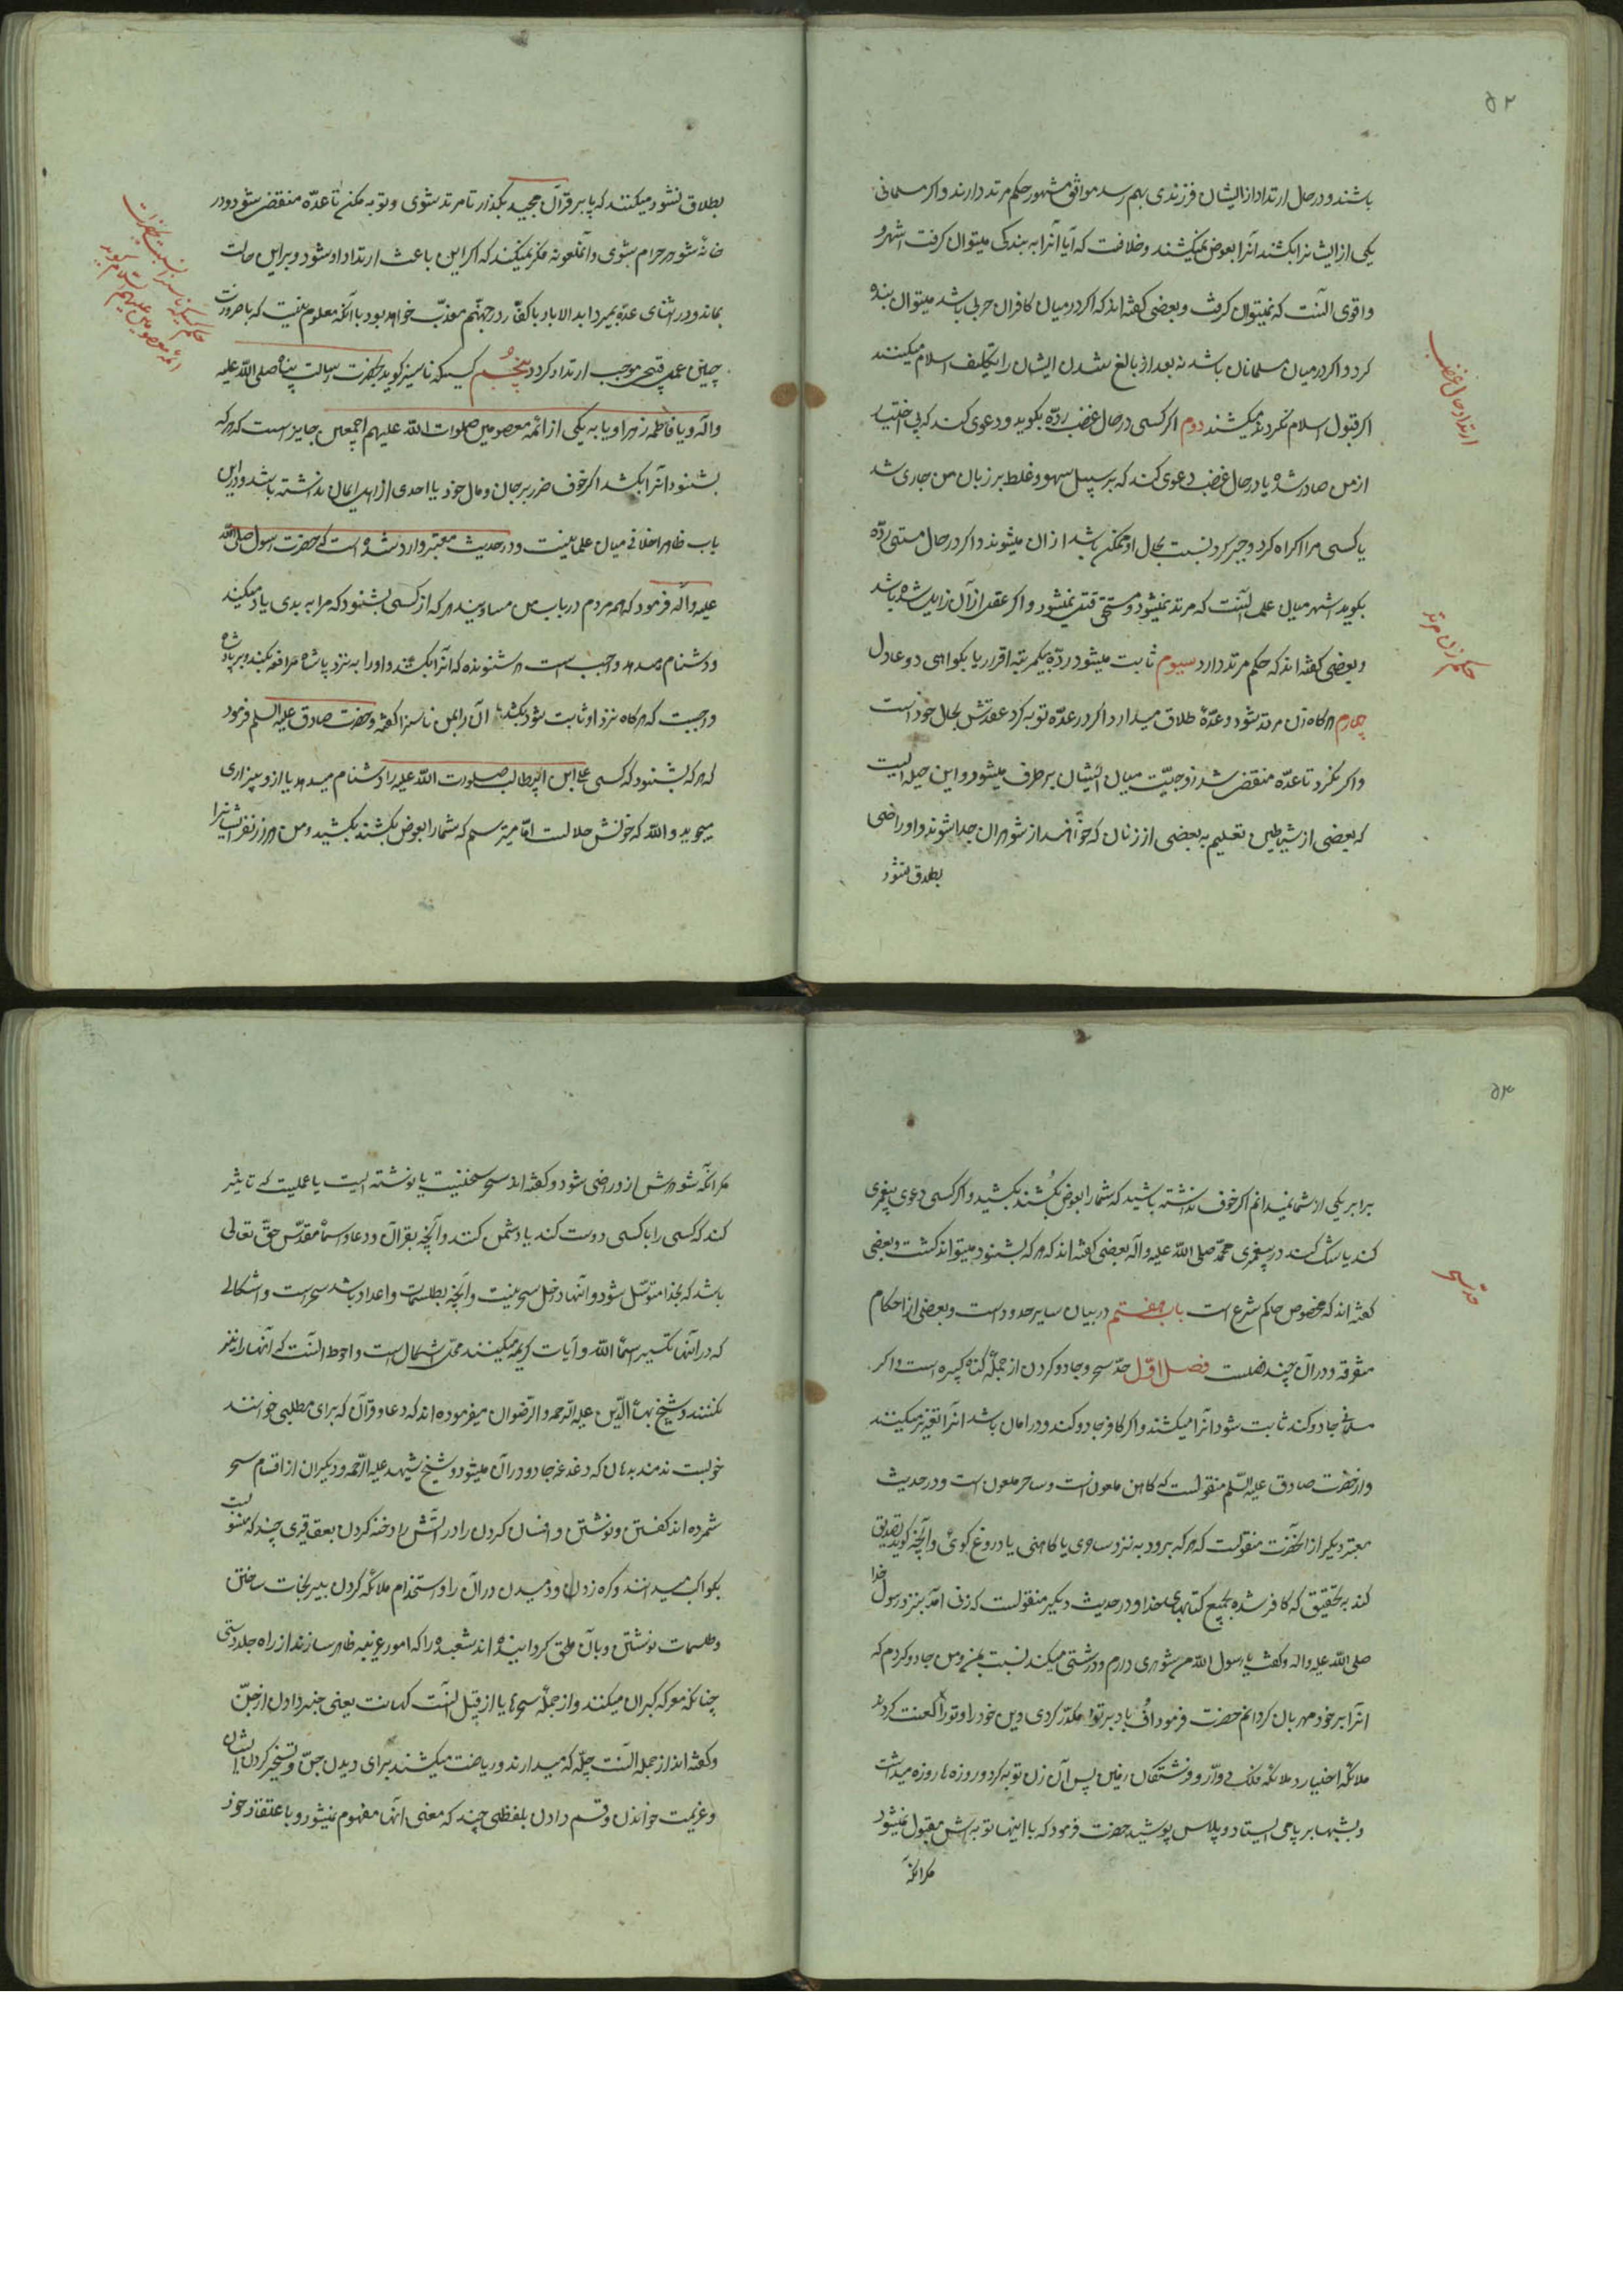 ۵۲
باشند و در حال ارتداد از ایشان فرزندی بهم رسد موافق مشهور حکم مرتد دارند و اکر مسلمانی
یکی از ایشانرا بکشد انرا بعوض نمیکشند و خلافست که آیا انرا به بندکی میتوان کرفت اشهر و
و اقوی آنست که نمیتوان کرفت و بعضی کفته اند که اکر در میان کافران حربی باشد میتوان بنده
کرد و اکر در میان مسلمانان باشد نه بعد از بالغ شدن ایشان را تکلیف اسلام میکنند
اکر قبول اسلام نکردند میکشند دوم اکر کسی در حال غضب ردّه بکوید و دعوی کند که بی اختیار
از من صادر شده یا در حال غضب دعوی کند که بر سبیل سهو و غلط بر زبان من جاری شد
یا کسی مرا اکراه کرد و جبر کرد نسبت بحال او ممکن باشد از ان میشنوند و اکر در حال مستی ردّه
بکوید اشهر میان علما آنست که مرتد نمیشود و مستحق قتل نمیشود و اکر عقل از آن زایل شده باشد
و بعضی کفته اند که حکم مرتد دارد سیوم ثابت میشود ردّه بیکمرتبه اقرار یا بکواهی دو عادل
چهارم هرکاه زن مرتد شود و عدّهٔ طلاق میدارد اکر در عدّه توبه کرد عقدش بحال خود است
و اکر نکرد تا عدّه منقضی شد زوجیّت میان ایشان برطرف میشود و این حیله ایست
که بعضی از شیاطین تعلیم به بعضی از زنان که خواهند از شوهران جدا شوند و او راضی
بطلاق نشود
ارتداد حال غضب
حکم زن مرتد
بطلاق نشود میکنند که پا بر قرآن مجید بکذار تا مرتد شوی و توبه مکن تا عدّه منقضی شود و در
خانهٔ شوهر حرام شوی و آنملعونه فکر نمیکند که اکر این باعث ارتداد او شود و بر این حالت
بماند و در اثنای عدّه بمیرد ابد الاباد با کفّار در جهنّم معذّب خواهد بود با آنکه معلوم نیست که با ضرورت
چنین عمل قبیحی موجب ارتداد کردد پنجُم کسیکه ناسزا کوید بحضرت رسالت پناه صلی اللّه علیه
و آله و یا فاطمه زهرا و یا به یکی از ائمه معصومین صلوات اللّه علیهم اجمعین جایز است که هر که
بشنود آنرا بکشد اکر خوف ضرر بر جان و مال خود یا احدی از اهل ایمان نداشته باشد و در این
باب ظاهرا خلافی میان علما نیست و در حدیث معتبر وارد شده است که حضرت رسول صلی اللّه
علیه و آله فرمود که همه مردم در باب من مساویند هر که از کسی بشنود که مرا به بدی یاد میکند
و دشنام میدهد واجب است بر شنونده که انرا بکشد و او را به نزد پادشاه مرافعه نکند و بر پادشاه
واجبست که هرکاه نزد او ثابت شود بکشد ان را که بمن ناسزا کفته و حضرت صادق علیه السلم فرمود
که هر که بشنود که کسی علی ابن ابیطالب صلوات اللّه علیه را دشنام میدهد یا از و بیزاری
میجوید و اللّه که خونش حلالست امّا میترسم که شما را بعوض بکشند بکشید و من هزار نفر ایشانرا
حکم کسیکه ناسزا نسبت بحضرات
ائمّهٔ معصومین علیهم السلام کوید
۵۳
برابر یکی از شما نمیدانم اکر خوف نداشته باشید که شما را بعوض بکُشند بکشید و اکر کسی دعوی پیغمبری
کند یا شک کند در پیغمبری محمّد صلی اللّه علیه و آله بعضی کفته اند که هر که بشنود میتواند کشت و بعضی
کفته اند که مخصوص حاکم شرع است باب هفتم در بیان سایر حدود است و بعضی از احکام
متفرقه و در آن چند فصلست فصل اوّل حدّ سحر و جادو کردن از جملهٔ کناه کبیره است و اکر
مسلمانی جادو کند ثابت شود انرا میکشند و اکر کافر جادو کند و در امان باشد انرا تعزیر میکنند
و از حضرت صادق علیه السّلم منقولست که کاهن ملعونست و ساحر ملعون است و در حدیث
معتبر دیکر از انحضرت منقولست که هر که برود به نزد ساحری یا کاهنی یا دروغ کوئی و آنچه کوید تصدیق
کند بتحقیق که کافر شده بجمیع کتابهای خدا و در حدیث دیکر منقولست که زنی امد بنزد رسول خدا
صلی اللّه علیه واله و کفت یا رسول اللّه من شوهری دارم و درشتی میکند نسبت بمن و من جادو کردم که
انرا بر خود مهربان کردانم حضرت فرمود اف باد بر تو مکدّر کردی دین خود را و تو را لعنت کردند
ملائکهٔ اخیار و ملائکه فلک دوّار و فرشتکان زمین پس آن زن توبه کرد و روزه ها روزه میداشت
و بشبها بر پا می ایستاد و پلاس پوشید حضرت فرمود که با اینها توبه اش مقبول نمیشود
مکر انکه
حد سحر
مکر انکه شوهرش از و راضی شود و کفته اند سحر سخنیست یا نوشته ایست یا عملیست که تاثیر
کند که کسی را با کسی دوست کند یا دشمن کند و آنچه بقرآن و دعا و اسمأ مقدّس حقّ تعالی
باشد که بخدا متوسّل شود و انها داخل سحر نیست و انچه بطلسمات و اعداد باشد سحر است و اشکالی
که در انها تکسیر اسمأ اللّه و آیات کریمه میکنند محل اشکال است و احوط انست که انها را نیز
نکنند و شیخ بهاء الدّین علیه الرّحمه و الرّضوان میفرموده اند که دعا و قرآن که برای مطلبی خوانند
خوبست ندمند بدان که دغدغه جادو در آن میشود و شیخ شهید علیه الرّحمه و دیکران از اقسام سحر
شمرده اند کفتن و نوشتن و افسان کردن را در اتش را و دخنه کردن بعقاقیری چند که منسوبست
بکواکب میدانند و کره زدن و دمیدن در آن را و استخدام ملائکه کردن بیرنجات ساختن
و طلسمات نوشتن و بآن ملحق کردانیده اند شعبده را که امور غریبه ظاهر سازند از راه جلد دستی
چنانکه معرکه کیران میکنند و از جملهٔ سحرها یا از قبیل انست کهانت یعنی خبر دادن از جنّ
و کفته اند از جمله انست چلّه که میدارند و ریاضت میکشند برای دیدن جنّ و تسخیر کردن ایشان
و عزیمت خواندن و قسم دادن بلفظی چند که معنی انها مفهوم نمیشود و باعتقاد خود